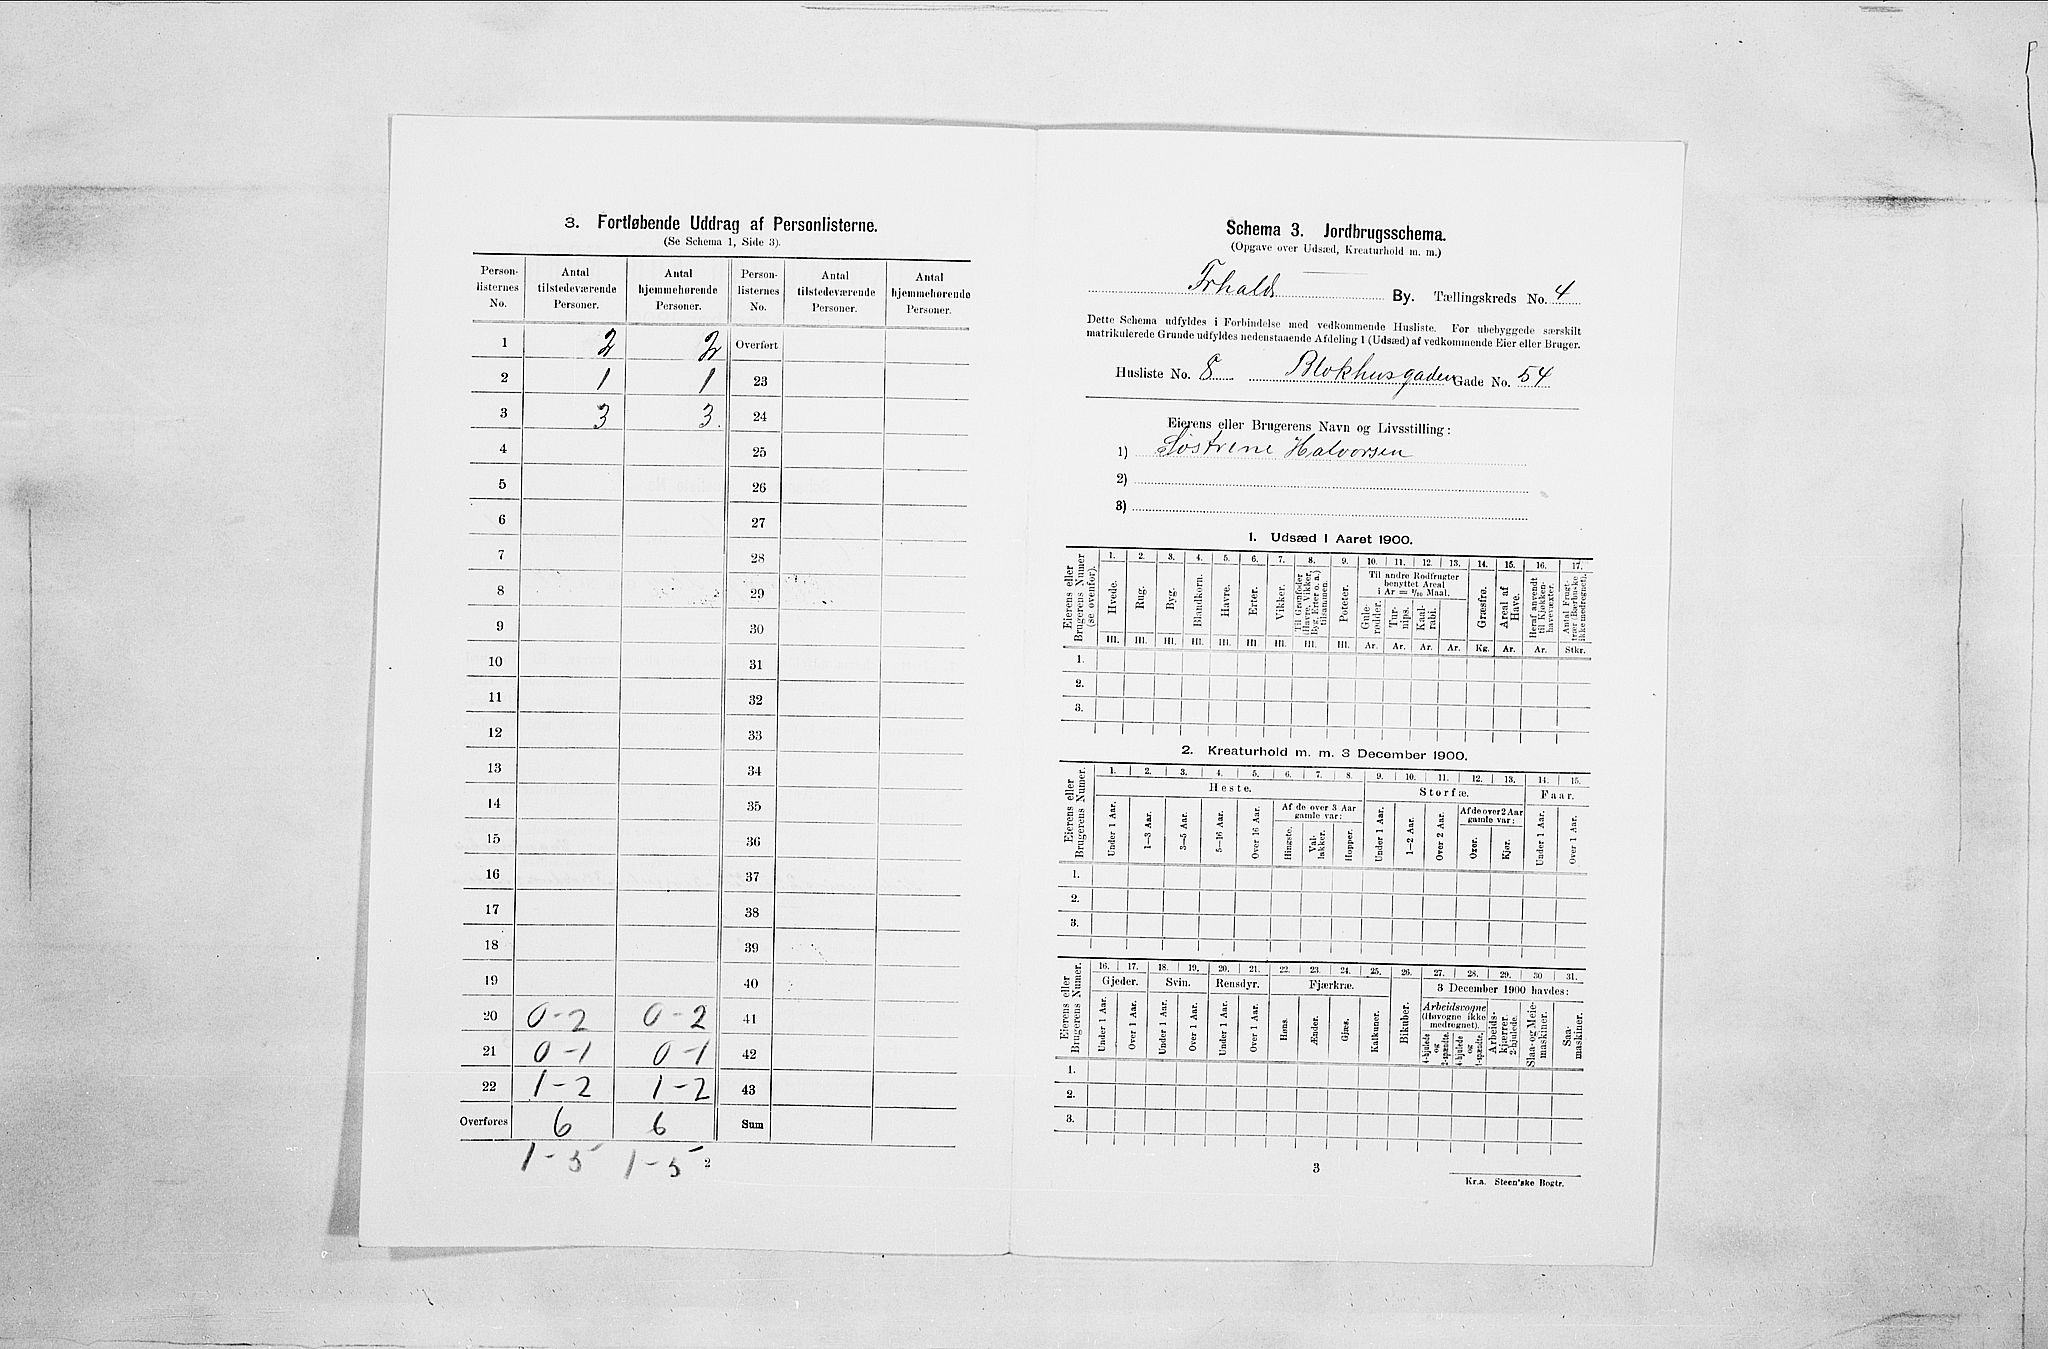 3. Fortløbende Uddrag af Personlisterne.
(Se Schema 1, Side 3).
Person-listernes No. | Antal tilstedeværende Personer. | Antal hjemmehørende Personer. | Person-listernes No. | Antal tilstedeværende Personer. | Antal hjemmehørende Personer.
1 | 2 | 2 | Overført
2 | 1 | 1 | 23
3 | 3 | 3. | 24
4 | 25
5 | 26
6 | 27
7 | 28
8 | 29
9 | 30
10 | 31
11 | 32
12 | 33
13 | 34
14 | 35
15 | 36
16 | 37
17 | 38
18 | 39
19 | 40
20 | 0-2 | 0-2 | 41
21 | 0-1 | 0-1 | 42
22 | 1-2 | 1-2 | 43
Overføres | 6 | 6 | Sum
1-5 1-5
2
Schema 3. Jordbrugsschema.
(Opgave over Udsæd, Kreaturhold m. m.)
Frhald By. Tællingskreds No. 4
Dette Schema udfyldes i Forbindelse med vedkommende Husliste. For ubebyggede særskilt
matrikulerede Grunde udfyldes nedenstaaende Afdeling 1 (Udsæd) af vedkommende Eier eller Bruger.
Husliste No. 8 Blokhusgaden Gade No. 54
Eierens eller Brugerens Navn og Livsstilling:
1) Søstrene Halvorsen
2)
3)
1. Udsæd i Aaret 1900.
Eierens eller Brugerens Numer (se ovenfor).
1. 2. 3. 4. 5. 6. 7. 8. 9. 10. 11. 12. 13. 14. 15. 16. 17.
Hvede. Rug. Byg. Blandkorn. Havre. Erter. Vikker. Til Grønfoder Havre, Vikker, Byg, Erter o. a.) tilsammen. Poteter.
Til andre Rodfrugter benyttet Areal i Ar = 1/10 Maal.
Gule-rødder. Tur-nips. Kaal-rabi. Græsfrø. Areal af Have. Heraf anvendt til Kjøkken-havevæxter. Antal Frugt-trær (Bærbuske ikke medregnet).
Hl. Hl. Hl. Hl. Hl. Hl. Hl. Hl. Hl. Ar. Ar. Ar. Ar. Kg. Ar. Ar. Stkr.
1.
2.
3.
2. Kreaturhold m. m. 3 December 1900.
Eierens eller Brugerens Numer.
1. 2. 3. 4. 5. 6. 7. 8. 9. 10. 11. 12. 13. 14. 15.
Heste. Storfæ. Faar.
Af de over 3 Aar gamle var: Af de over 2 Aar gamle var:
Under 1 Aar. 1—3 Aar. 3—5 Aar. 5—16 Aar. Over 16 Aar. Hingste. Val-lakker. Hopper. Under 1 Aar. 1—2 Aar. Over 2 Aar. Oxer. Kjør. Under 1 Aar. Over 1 Aar.
1.
2.
3.
Eierens eller Brugerens Numer.
16. 17. 18. 19. 20. 21. 22. 23. 24. 25. 26. 27. 28. 29. 30 31.
Gjeder. Svin. Rensdyr. Fjærkræ. Bikuber. 3 December 1900 havdes:
Under 1 Aar. Over 1 Aar. Under 1 Aar. Over 1 Aar. Under 1 Aar. Over 1 Aar. Høns. Ænder. Gjæs. Kalkuner.
Arbeidsvogne (Høvogne ikke medregnet).
4-hjulede og 2-spændte. 4-hjulede og 1-spændte. Arbeids-kjærrer. 2-hjulede. Slaa- og Meie-maskiner. Saa-maskiner.
1.
2.
3.
3
Kr.a. Steen'ske Bogtr.